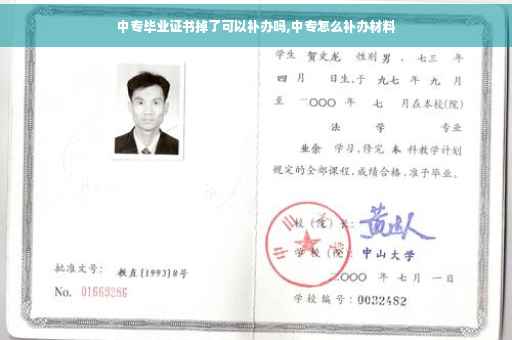 中专毕业证书掉了可以补办吗,中专怎么补办材料
学生 贺文龙 性别 男 、七三 年
四 月 日生,于 九七 年 九 月
至 二〇〇〇 年 七 月在本校(院)
法 学 专业
业余 学习,修完 本 科教学计划
规定的全部课程,成绩合格,准予毕业。
校(院)长:
学 校(院): 中山大学
二〇〇〇 年 七 月 一 日
批准文号: 教直[1993]8号
No. 01669286
学校编号: 0032482